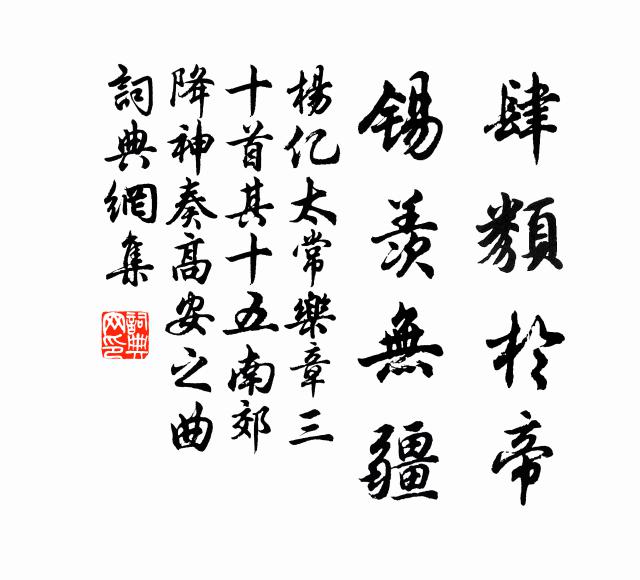 肆類於帝
錫羨無疆
楊億太常樂章三
十首其十五南郊
降神奏高安之曲
詞典網集
詞典网印